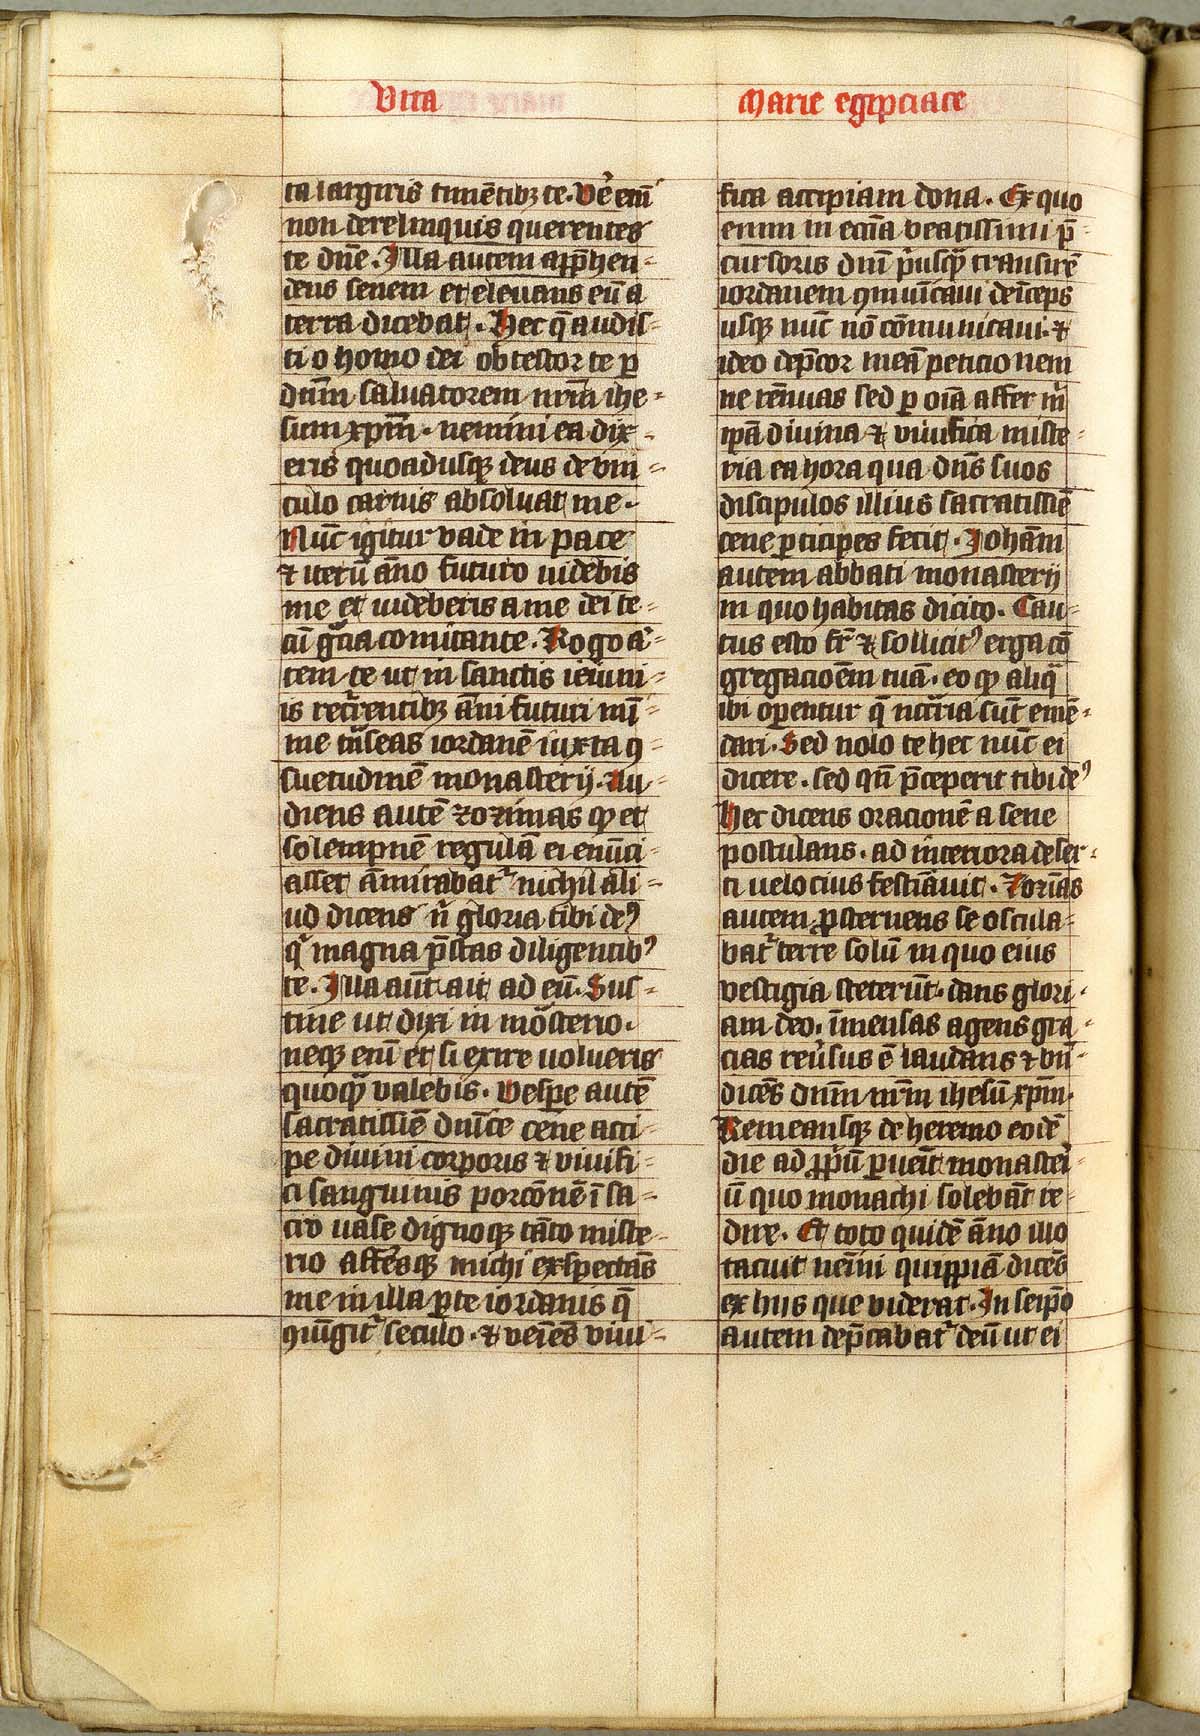 Vita
Marie egipciace
ta largiris timētibꝫ te. Ue᷑ eni᷑
non derelinquis querentes
te dn̄e. Illa autem app̄hen=
dens senem et eleuans eū a
terra dicebat. Hec q̄ audis=
ti o homo dei obtestor te ꝑ
dn̄m saluatorem nr̄m ihe=
sum xp̄m. nemini ea dix=
eris quoadusqꝫ deus de vin=
culo carnis absoluat me.
Nūc igitur vade in pace
⁊ iterū āno futuro uidebis
me et uideberis a me dei te=
cū gr̄a comitante. Rogo a᷑=
tem te ut in sanctis ieiuni=
is recr̄rentibꝫ āni futuri mī=
me tn̄seas iordanē iuxta ꝯ=
suetudinē monasterij. Au=
diens autē zozimas qꝫ et
solempnē regulā ei enūci=
asset āmirabat᷑ nichil ali=
ud dicens n̄ gloria tibi deꝰ
q᷑ magna p̄stas diligentibꝰ
te. Illa aūt ait ad eū. Sus=
tine ut dixi in mōsterio.
neqꝫ enī et si exire uolueris
quoqꝫ valebis. Vesꝑe autē
sacratissīe dn̄ice cene acci=
pe diuini corporis ⁊ viuifi=
ci sanguinis porcōnē ī sa=
cro uase dignoqꝫ tāto miste=
rio affe᷑sqꝫ michi exspectās
me in illa ꝑte iordanis q̄
ꝯiūgit᷑ seculo. ⁊ veīēs viui=
fica accipiam dona. Ex quo
enim in ecc̄ia beatissimi p̄=
cursoris dn̄i p᷑usqꝫ transirē
iordanem ꝯmūicaui deīceps
usqꝫ nūc nō cōmunicaui. ⁊
ideo dep̄cor meā peticionem
ne rēnuas sed ꝑ oīa affer m᷑
ip̄a diuina ⁊ viuifica miste=
ria ea hora qua dn̄s suos
discipulos illius sacratissīe
cene ꝑticipes fecit. Johān̄i
autem abbati monasterij
in quo habitas dicito. Cau=
tus esto fr̄ ⁊ sollicitꝰ erga cō
gregacioēm tuā. eo qꝫ aliq̄
ibi oꝑentur q̄ nc̄c̄ria sūt emē=
dari. Sed nolo te hec nūc ei
dicere. sed qn̄ p̄ceperit tibi deꝰ
Hec dicens oracionē a sene
postulans. ad interiora deser=
ti uelocius festīauit. Zozīas
autem ꝓsternens se oscula=
bat᷑ terre solū in quo eius
vestigia steterūt. dans glori=
am deo. īmensas agens gra=
cias reu᷑sus ē laudans ⁊ bn̄=
dicēs dn̄m nr̄m ihesū xp̄m.
Remeansqꝫ de heremo eodē
die ad ꝓp᷑ū ꝑueīt monaste᷑i=
ū quo monachi solebāt re=
dire. Et toto quidē āno illo
tacuit neīni quippiā dicēs
ex hiis que viderat. In seip̄o
autem dep̄cabat᷑ deū ut ei